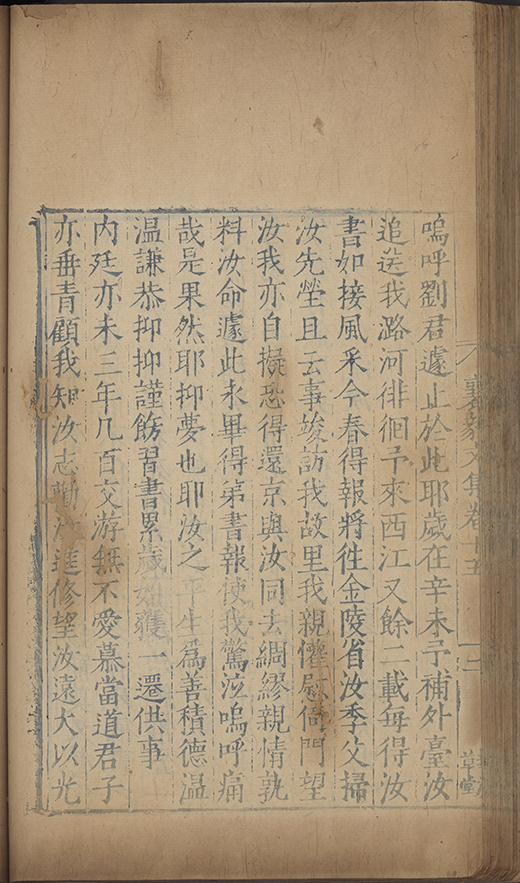 襄毅文集卷十五
嗚呼劉君遽止於此耶歲在辛未予補外臺汝
追送我潞河徘徊予來西江又餘二載每得汝
書如接風采今春得報將徃金陵省汝季父掃
汝先塋且云事竣訪我故里我親懽慰倚門望
汝我亦自擬恐得還京與汝同去綢繆親情孰
料汝命遽此永畢得第書報使我驚泣嗚呼痛
哉是果然耶抑夢也耶汝之平生爲善積德温
温謙恭抑抑謹飭習書累歲始獲一遷供事
内廷亦未三年凡百交游無不愛慕當道君子
亦垂青顧我知汝志勤汝進修望汝遠大以光